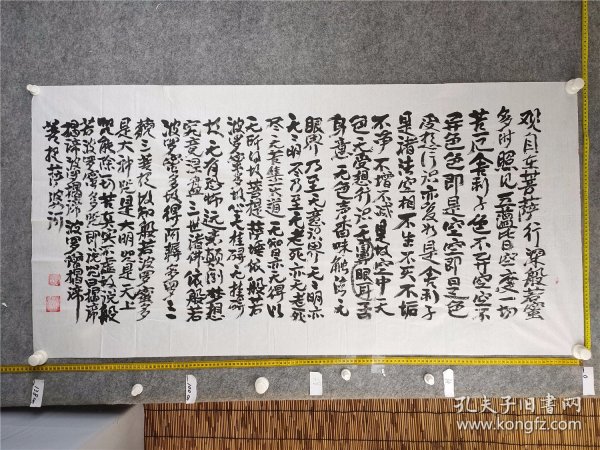 观自在菩萨行深般若蜜
多时照见五蕴皆空度一切
苦厄舍利子色不异空空不
异色色即是空空即是色
受想行识亦复如是舍利子
是诸法空相不生不灭不垢
不净不增不减是故空中无
色无受想行识无眼耳舌
身意无色声香味触法无
眼界乃至无意识界无无明亦
无无明尽乃至无老死亦无老死
尽无苦集灭道无知亦无得以
无所得故菩提萨埵依般若
波罗蜜多故心无挂碍无挂碍
故无有恐怖远离颠倒梦想
究竟涅槃三世诸佛依般若
波罗蜜多故得阿耨多罗三
藐三菩提故知般若波罗蜜多
是大神咒是大明咒是无上
咒能除一切苦真实不虚故说般
若波罗蜜多咒即说咒曰揭谛
揭谛波罗揭谛波罗僧揭谛
菩提萨婆诃
孔夫子旧书网
www.kongfz.com